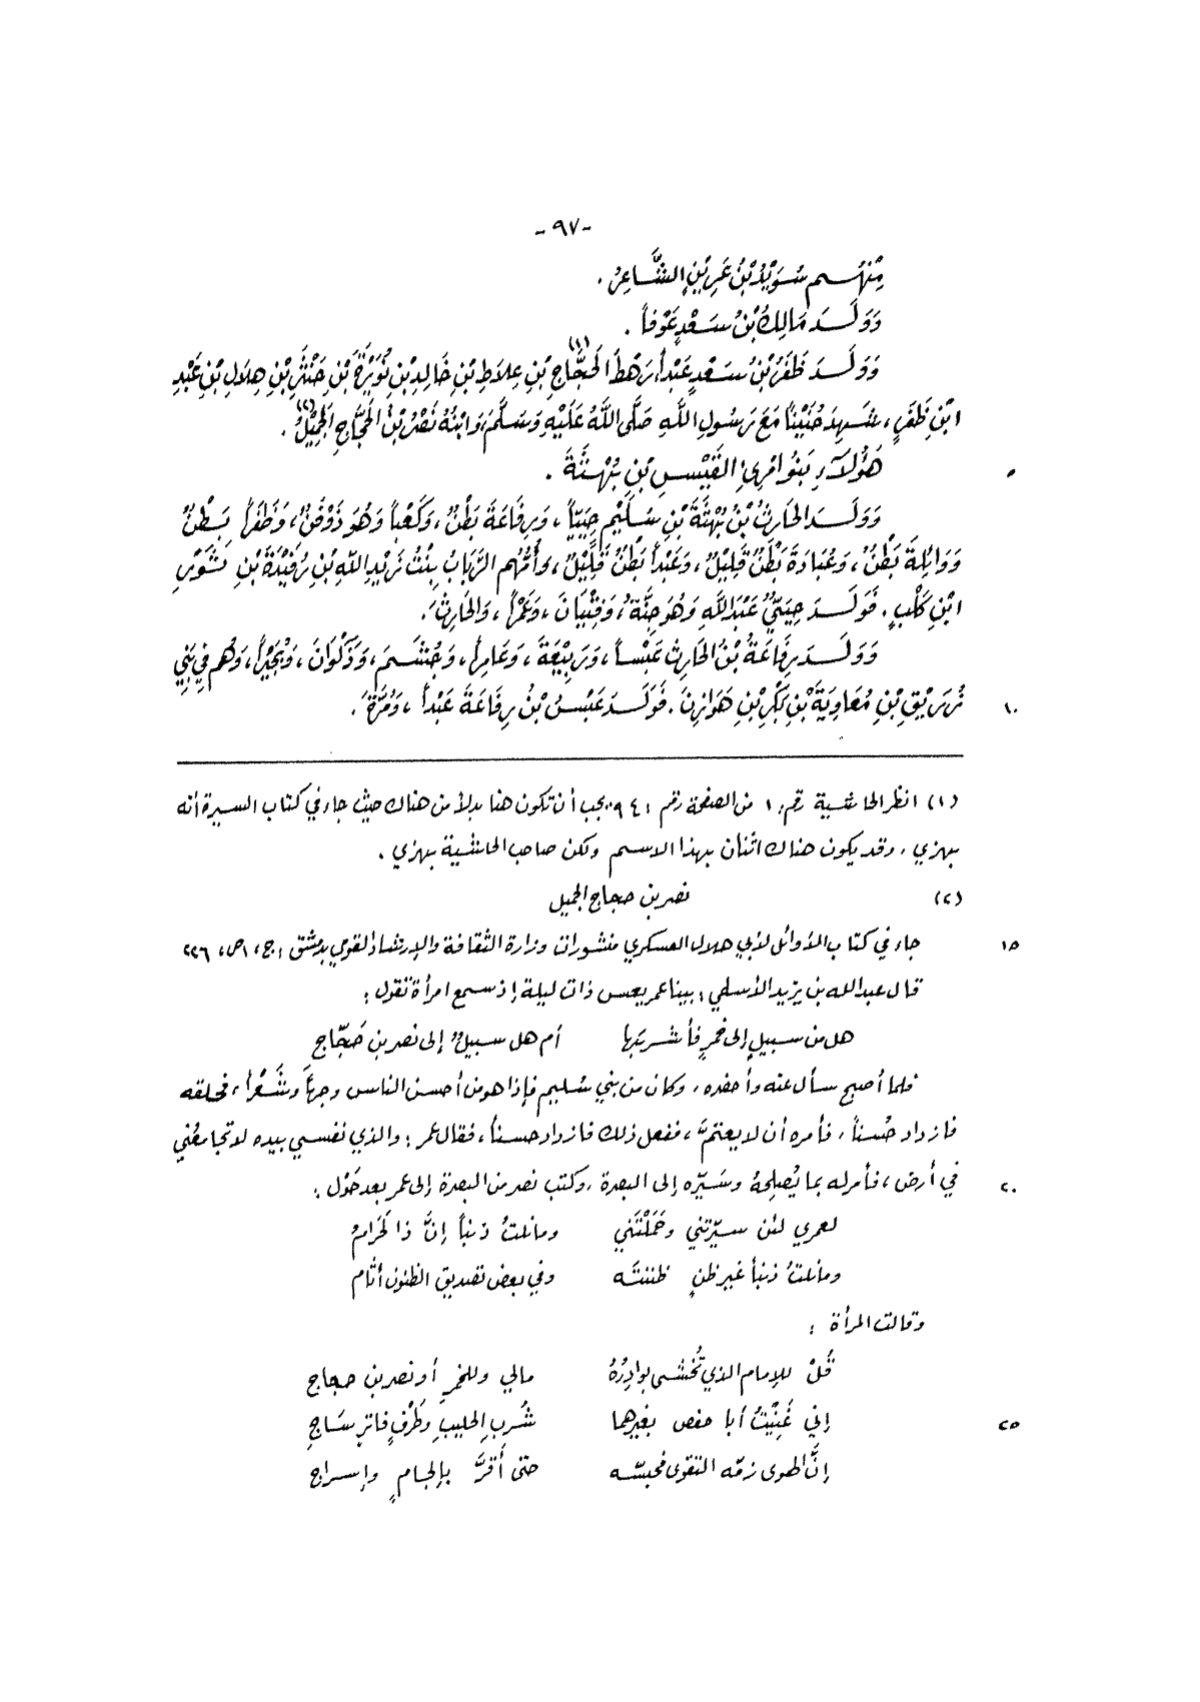 -٩٧-
مِنْهُم سُوَيْدُ بْنُ عُمَيْرِ بْنِ الشَّاعِرُ .
وَوَلَدَ مَالِكُ بْنُ سَعْدٍ عَوْفاً .
وَوَلَدَ ظَفَرُ بْنُ سَعْدٍ عَبْداً رَهْطَ الحَجَّاجِ (١) بْنِ عِلَاطِ بْنِ خَالِدِ بْنِ نُوَيْرَةَ بْنِ حَنْثَرِ بْنِ هِلَالِ بْنِ عَبْدِ
ابْنِ ظَفَرٍ، شَهِدَ حُنَيْناً مَعَ رَسُولِ اللَّهِ صَلَّى اللَّهُ عَلَيْهِ وَسَلَّمَ، وَابْنُهُ نَصْرُ بْنُ الحَجَّاجِ الجَمِيْلُ (٢) .
هَؤُلَاءِ بَنُو امْرِئِ القَيْسِ بْنِ بُهْثَةَ .
٥
وَوَلَدَ الحَارِثُ بْنُ بُهْثَةَ بْنِ سُلَيْمٍ حِيَيّاً، وَرِفَاعَةَ بَطْنٌ، وَكَعْباً وَهُوَ ذَوْفَنُ، وَظَفَراً بَطْنٌ
وَوَائِلَةَ بَطْنٌ، وَعُبَادَةَ بَطْنٌ قَلِيْلٌ، وَعَبْداً بَطْنٌ قَلِيْلٌ، وَأُمُّهُم الرَّبَابُ بِنْتُ زَيْدِ اللَّهِ بْنِ رُفَيْدَةَ بْنِ ثَوْرِ
ابْنِ كَلْبٍ. فَوَلَدَ حِيَيٌّ عَبْدَ اللَّهِ وَهُوَ جِنَّةُ، وَفِتْيَانَ، وَعَمْراً، وَالحَارِثَ.
وَوَلَدَ رِفَاعَةُ بْنُ الحَارِثِ عَبْساً، وَرَبِيْعَةَ، وَعَامِراً، وَجُشَمَ، وَذَكْوَانَ، وَبُجَيْراً، وَهُم فِي بَنِي
زُرَيْقِ بْنِ مُعَاوِيَةَ بْنِ بَكْرِ بْنِ هَوَازِنَ. فَوَلَدَ عَبْسُ بْنُ رِفَاعَةَ عَبْداً، وَمُرَّةَ.
١٠
(١) انظر الحاشية رقم: ١ من الصفحة رقم: ٩٤ يجب أن تكون هنا بدلاً من هناك حيث جاء في كتاب السيرة أنه
بهزي، وقد يكون هناك اثنان بهذا الاسم ولكن صاحب الحاشية بهزي .
(٢) نصر بن حجاج الجميل
جاء في كتاب الأوائل لأبي هلال العسكري منشورات وزارة الثقافة والإرشاد القومي بدمشق، ج، ١ ص، ٢٢٦
١٥
قال عبد الله بن يزيد الأسلمي: بينا عمر يعس ذات ليلة إذ سمع امرأة تقول:
هل من سبيلٍ إلى خمرٍ فأشربَها أم هل سبيلٌ إلى نصر بن حَجّاج
فلما أصبح سأل عنه وأحضره، وكان من بني سُليم فإذا هو من أحسن الناس وجهاً وشَعْراً، فحلقه
فازداد حُسناً، فأمره أن لا يعتمَّ، ففعل ذلك فازداد حسناً، فقال عمر: والذي نفسي بيده لا تجامعُني
في أرض، فأمر له بما يُصلِحهُ وسَيّره إلى البصرة، وكتب نصر من البصرة إلى عمر بعد حَوْل:
٢٠
لعمري لئن سيّرتني وحَمَلْتَني وما نلتُ ذنباً إنَّ ذا لَحَرامُ
وما نلتُ ذنباً غير ظنٍ ظننتَه وفي بعض تصديق الظنون أثام
وقالت المرأة :
قُلْ للإمام الذي تُخْشى بوادِرُهُ مالي وللخمرِ أو نصر بن حجاج
إني غُنِيْتُ أبا حفص بغيرهما شُربِ الحليبِ وطَرْفٍ فاترٍ سَاجِ
٢٥
إنَّ الهوى زمّه التقوى فحبسّه حتى أَقرَّ بإلجامٍ وإسراج